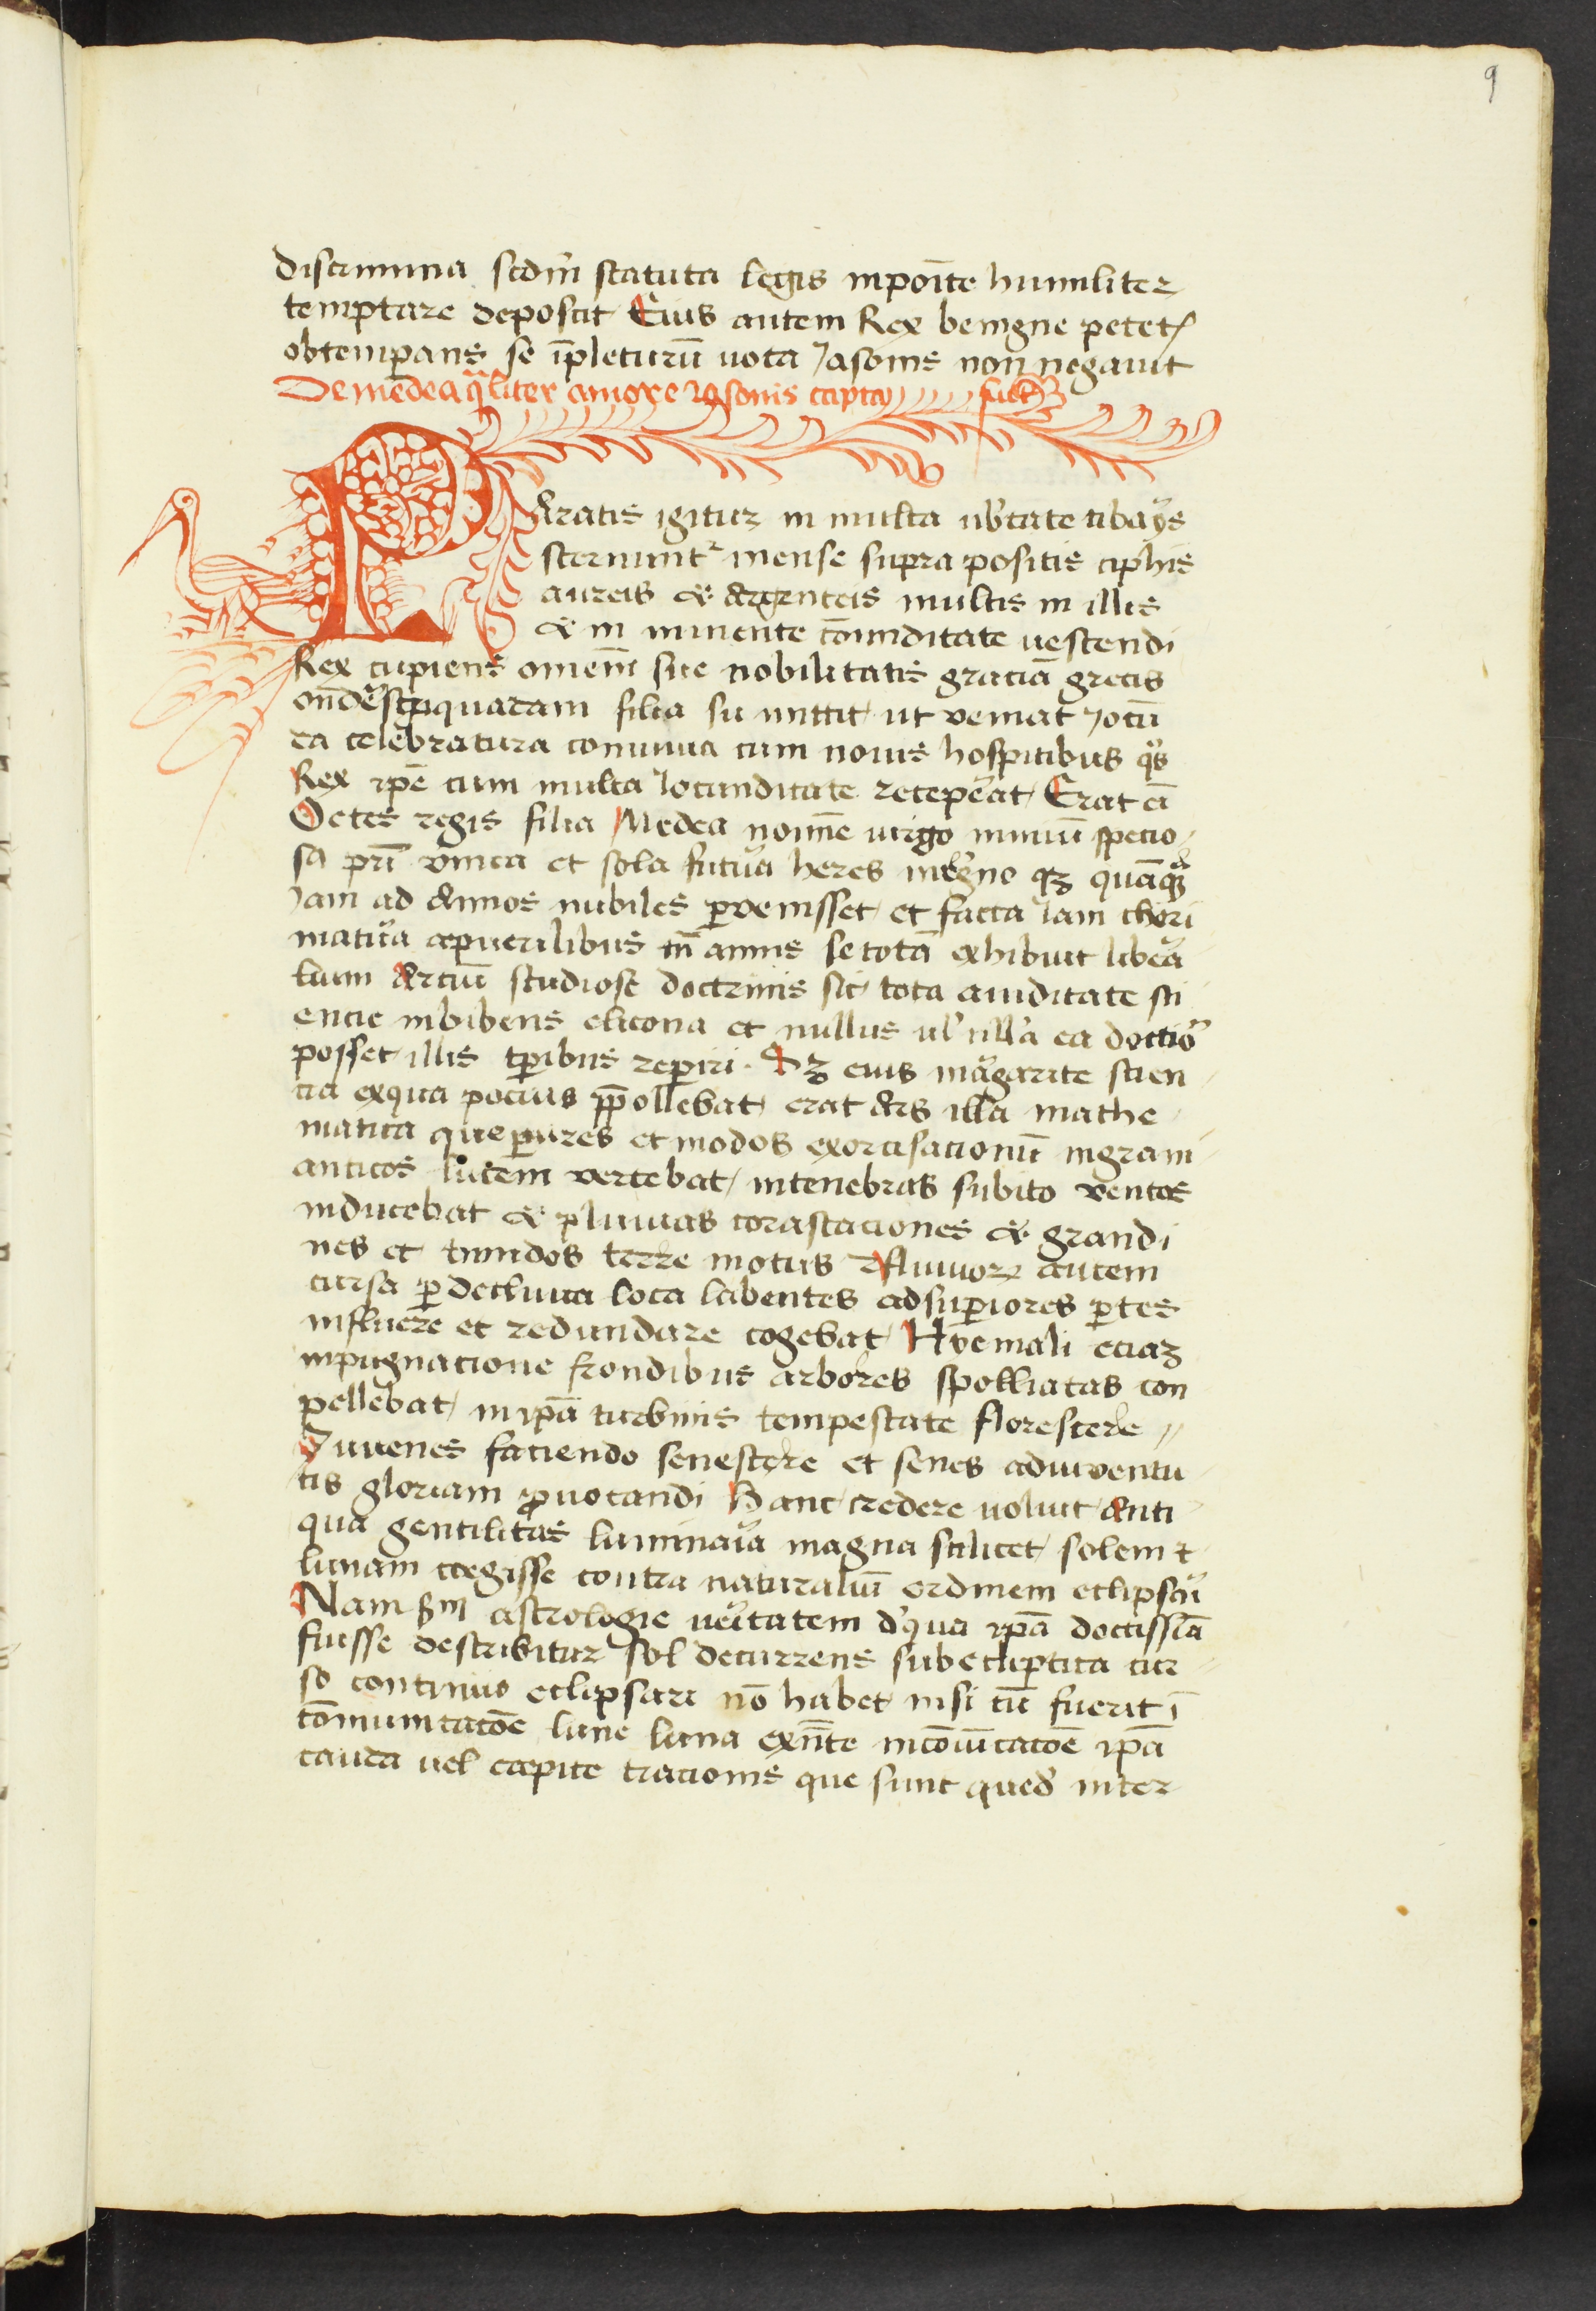 9
discrimina scdm̄ statuta legis inpoīte humiliter
temptare deposcit Eius autem Rex benigne petetꝭ
obtemꝑans se īpleturū uota Jasonis non negauit
De medea qͣliter amore iasonis capta fuit
Paratis igitur in multa ub̓tate cibarijs
sternunt̉ mense supra positis ciphis
aureis & argenteis multis in illis
& in minente cōmuditate uescendi
Rex cupiens omnem̄ sue nobilitatis graciā grecis
on̄dere quadam filia su mittit ut veniat Jocū
da celebratura conuiuia cum nouis hospitibus qͦs
Rex ip̄e cum multa Jocunditate receperat Erat eī
Oetes regis filia Medea nomīe uirgo nimiū specio
sa pr̄i vnica et sola futura heres in regno qꝫ quāqꝫ
Jam ad annos nubiles ꝑvenisset et facta Jam thori
matura a puerilibus tn̄ annis se totā exhibuit libera
lium Artiū studiose doctrinis sic tota auiditate sci
encie inbibens elicona et nullus ul̓ ulla ea doctior
posset illis tꝑibus reꝑiri. Sꝫ eius margarite scien
cia ex qua pocius p̄pollebat erat ars illa mathe
matica que ꝑ uires et modos exorcisacionū nigram
anticos lucem vertebat in tenebras subito ventos
inducebat & pluuias corascaciones & grandi
nes et timidos terre motus Fluuiorꝝ autem
cursa ꝑ decliuia loca labentes ad suꝑiores ꝑtes
influere et redundare cogebat Hyemali eciaꝫ
inpugnacione frondibus arbores spolliatas con
pellebat in ip̄a turbinis tempestate florescere
Juuenes faciendo senescere et senes ad iuventu
tis gloriam ꝓuocandi Hanc credere uoluit anti
qua gentilitas luminaria magna scilicet solem ⁊
lunam coegisse contra naturaliū ordinem eclipsari
Nam scd̄m astrologie ueritatem d̓ qua ip̄a doctissīa
fuisse describitur sol decurrens sub ecliptica cur
so continuo eclipsari nō habet nisi cū fuerit ī
cōmunicacōe lune luna exn̄te in cōiūcacōe ip̄a
cauda uel capite tracionis que sunt qued̄ inter